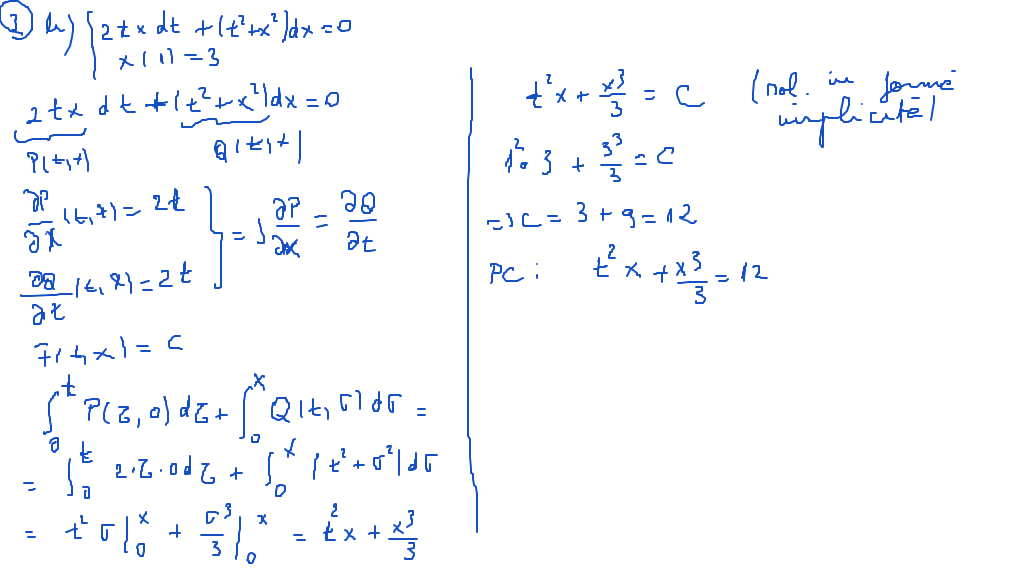 ③ b) { 2tx dt + (t²+x²)dx = 0
x(1) = 3
2tx dt + (t²+x²)dx = 0
P(t,x) Q(t,x)
∂P/∂x (t,x) = 2t
∂Q/∂t (t,x) = 2t
} => ∂P/∂x = ∂Q/∂t
F(t,x) = C
∫₀ᵗ P(τ,0)dτ + ∫₀ˣ Q(t,σ)dσ =
= ∫₀ᵗ 2·τ·0dτ + ∫₀ˣ (t²+σ²)dσ
= t²σ|₀ˣ + σ³/3|₀ˣ = t²x + x³/3
t²x + x³/3 = C (sol. in formă
implicită)
1²·3 + 3³/3 = C
=> C = 3 + 9 = 12
PC: t²x + x³/3 = 12